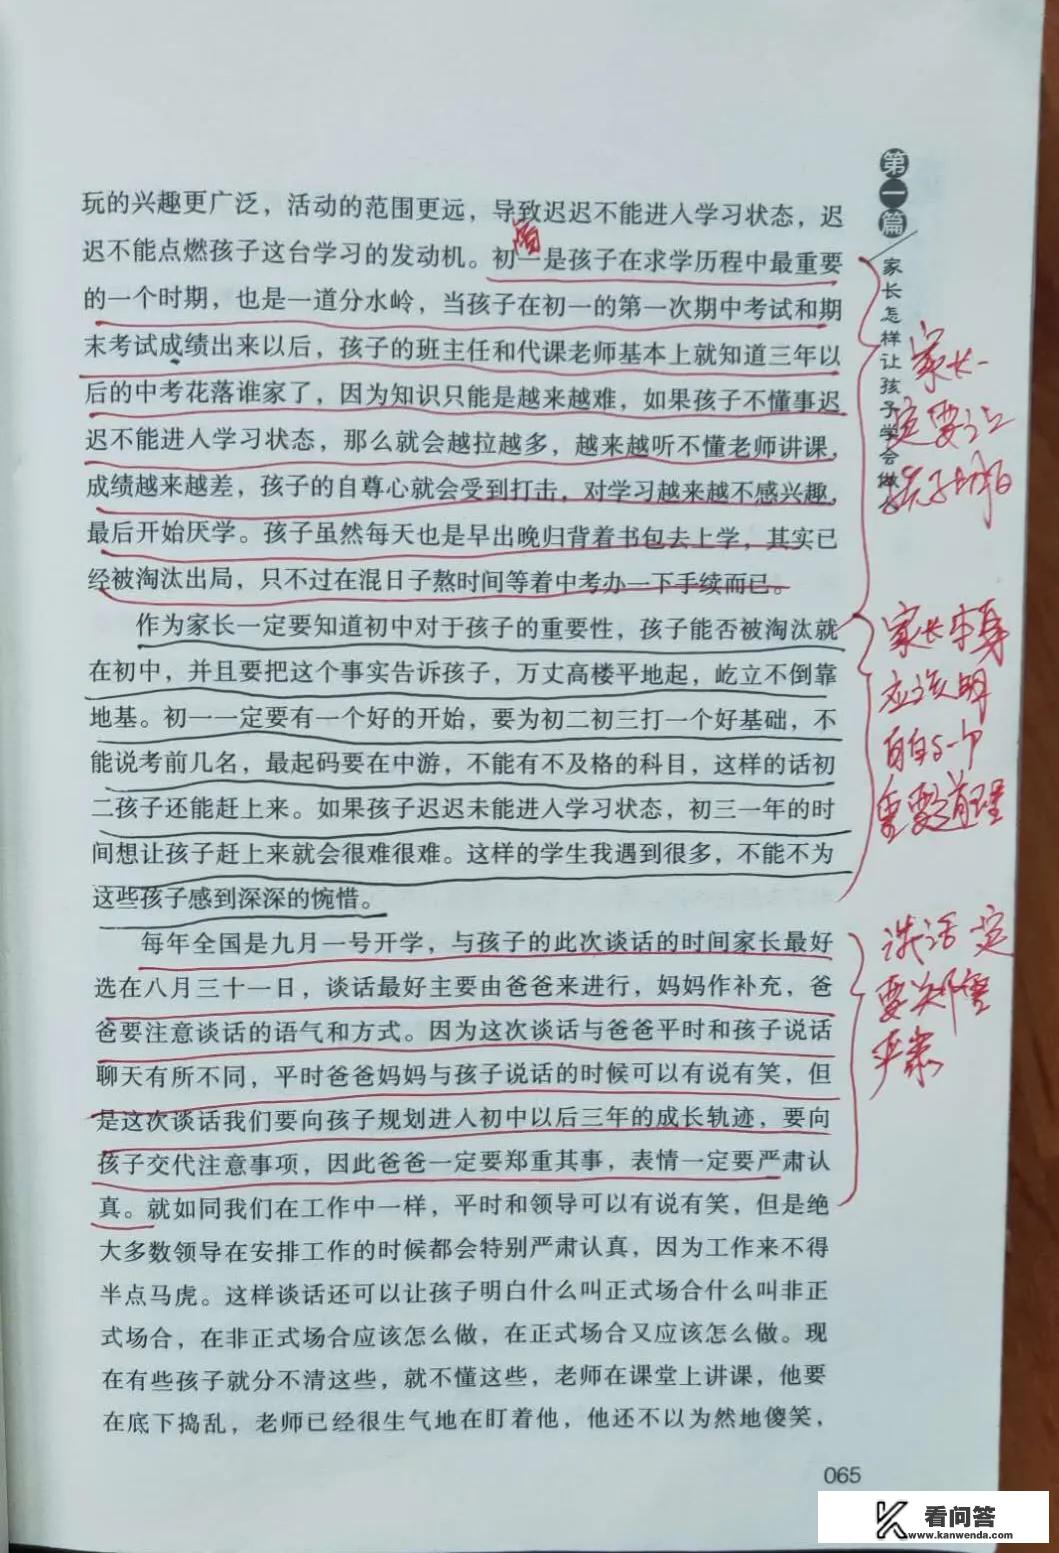 第一篇
家长怎样让孩子学会做人
玩的兴趣更广泛，活动的范围更远，导致迟迟不能进入学习状态，迟
迟不能点燃孩子这台学习的发动机。初一是孩子在求学历程中最重要
的一个时期，也是一道分水岭，当孩子在初一的第一次期中考试和期
末考试成绩出来以后，孩子的班主任和代课老师基本上就知道三年以
后的中考花落谁家了，因为知识只能是越来越难，如果孩子不懂事迟
迟不能进入学习状态，那么就会越拉越多，越来越听不懂老师讲课，
成绩越来越差，孩子的自尊心就会受到打击，对学习越来越不感兴趣，
最后开始厌学。孩子虽然每天也是早出晚归背着书包去上学，其实已
经被淘汰出局，只不过在混日子熬时间等着中考办一下手续而已。
作为家长一定要知道初中对于孩子的重要性，孩子能否被淘汰就
在初中，并且要把这个事实告诉孩子，万丈高楼平地起，屹立不倒靠
地基。初一一定要有一个好的开始，要为初二初三打一个好基础，不
能说考前几名，最起码要在中游，不能有不及格的科目，这样的话初
二孩子还能赶上来。如果孩子迟迟未能进入学习状态，初三一年的时
间想让孩子赶上来就会很难很难。这样的学生我遇到很多，不能不为
这些孩子感到深深的惋惜。
每年全国是九月一号开学，与孩子的此次谈话的时间家长最好
选在八月三十一日，谈话最好主要由爸爸来进行，妈妈作补充，爸
爸要注意谈话的语气和方式。因为这次谈话与爸爸平时和孩子说话
聊天有所不同，平时爸爸妈妈与孩子说话的时候可以有说有笑，但
是这次谈话我们要向孩子规划进入初中以后三年的成长轨迹，要向
孩子交代注意事项，因此爸爸一定要郑重其事，表情一定要严肃认
真。就如同我们在工作中一样，平时和领导可以有说有笑，但是绝
大多数领导在安排工作的时候都会特别严肃认真，因为工作来不得
半点马虎。这样谈话还可以让孩子明白什么叫正式场合什么叫非正
式场合，在非正式场合应该怎么做，在正式场合又应该怎么做。现
在有些孩子就分不清这些，就不懂这些，老师在课堂上讲课，他要
在底下捣乱，老师已经很生气地在盯着他，他还不以为然地傻笑，
家长一
定要让
孩子明白
家长本身
应该明
白这一个
重要道理
谈话一定
要郑重
严肃
065
看问答
www.kanwenda.com